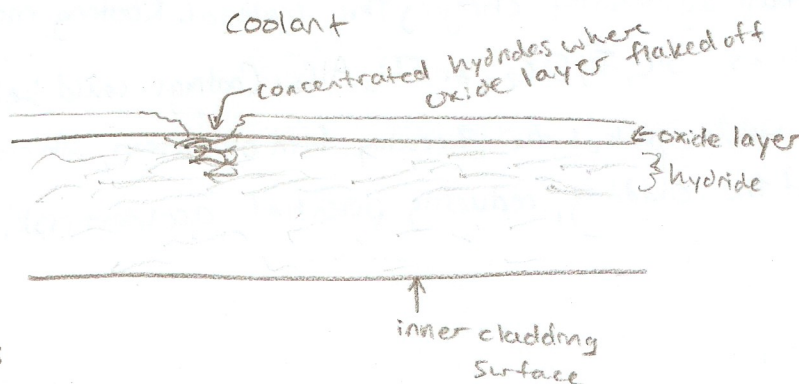 Coolant
concentrated hydrides where
oxide layer flaked off
oxide layer
hydride
inner cladding
surface